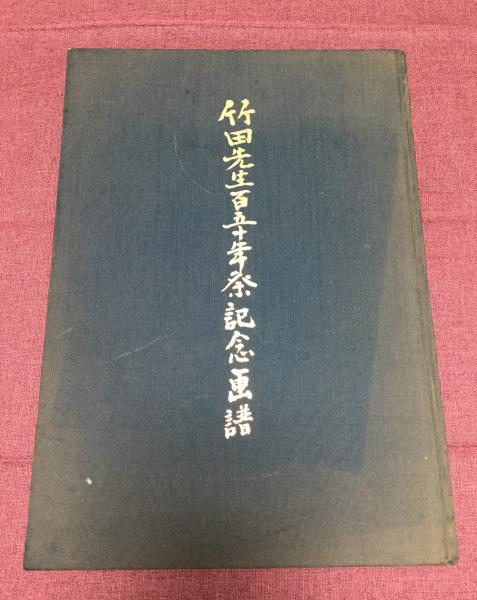 竹田先生百五十年祭記念画譜